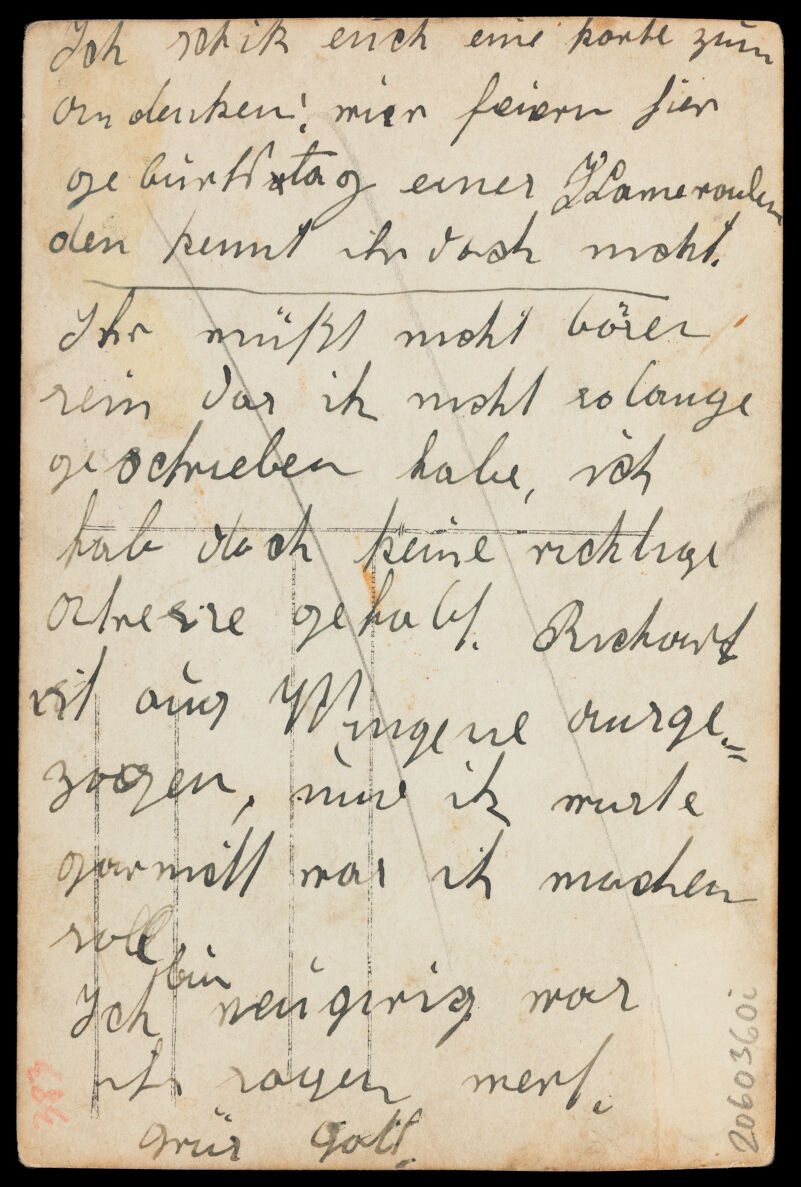 Ich schik euch eine karte zum
andenken! wier feiern hier
geburtstag einer Kameraden
den kennt ihr doch nicht.
Ihr müßt nicht böser
sein das ik nicht so lange
geschrieben habe, ich
hab doch keine richtige
Atresse gehabt. Richart
ist aus Wingene ausge=
zogen, nuw ik wuste
garnicht was ik machen
soll
Ich bin neugirig was
ihr sagen wert.
grüs Gott.
383
2060360i